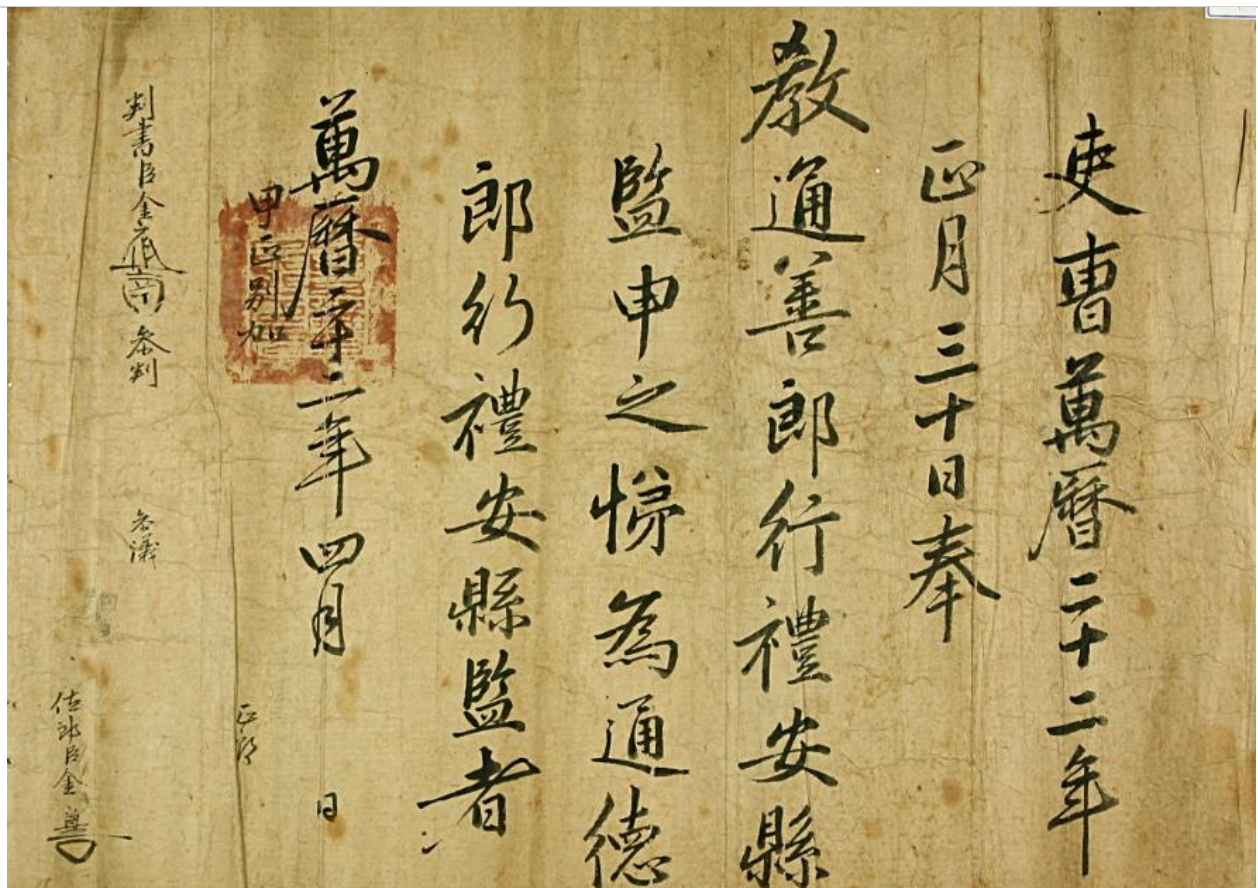 吏曹萬曆二十二年
正月三十日奉
敎通善郎行禮安縣
監申之悌為通德
郎行禮安縣監者
萬曆二十二年四月 日
甲午別加
判書臣金 参判
参議
正郎
佐郎臣金